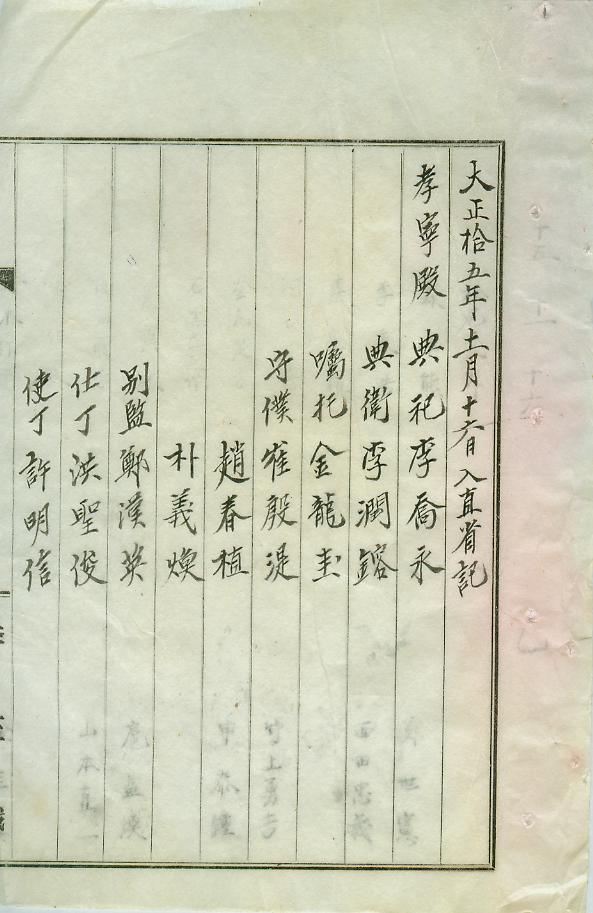 大正拾五年十一月十六日入直省記
孝寧殿 典祀李喬永
典衛李潤鎔
囑托金龍圭
守僕崔殷湜
趙春植
朴義煥
別監鄭漢英
仕丁洪聖俊
使丁許明信